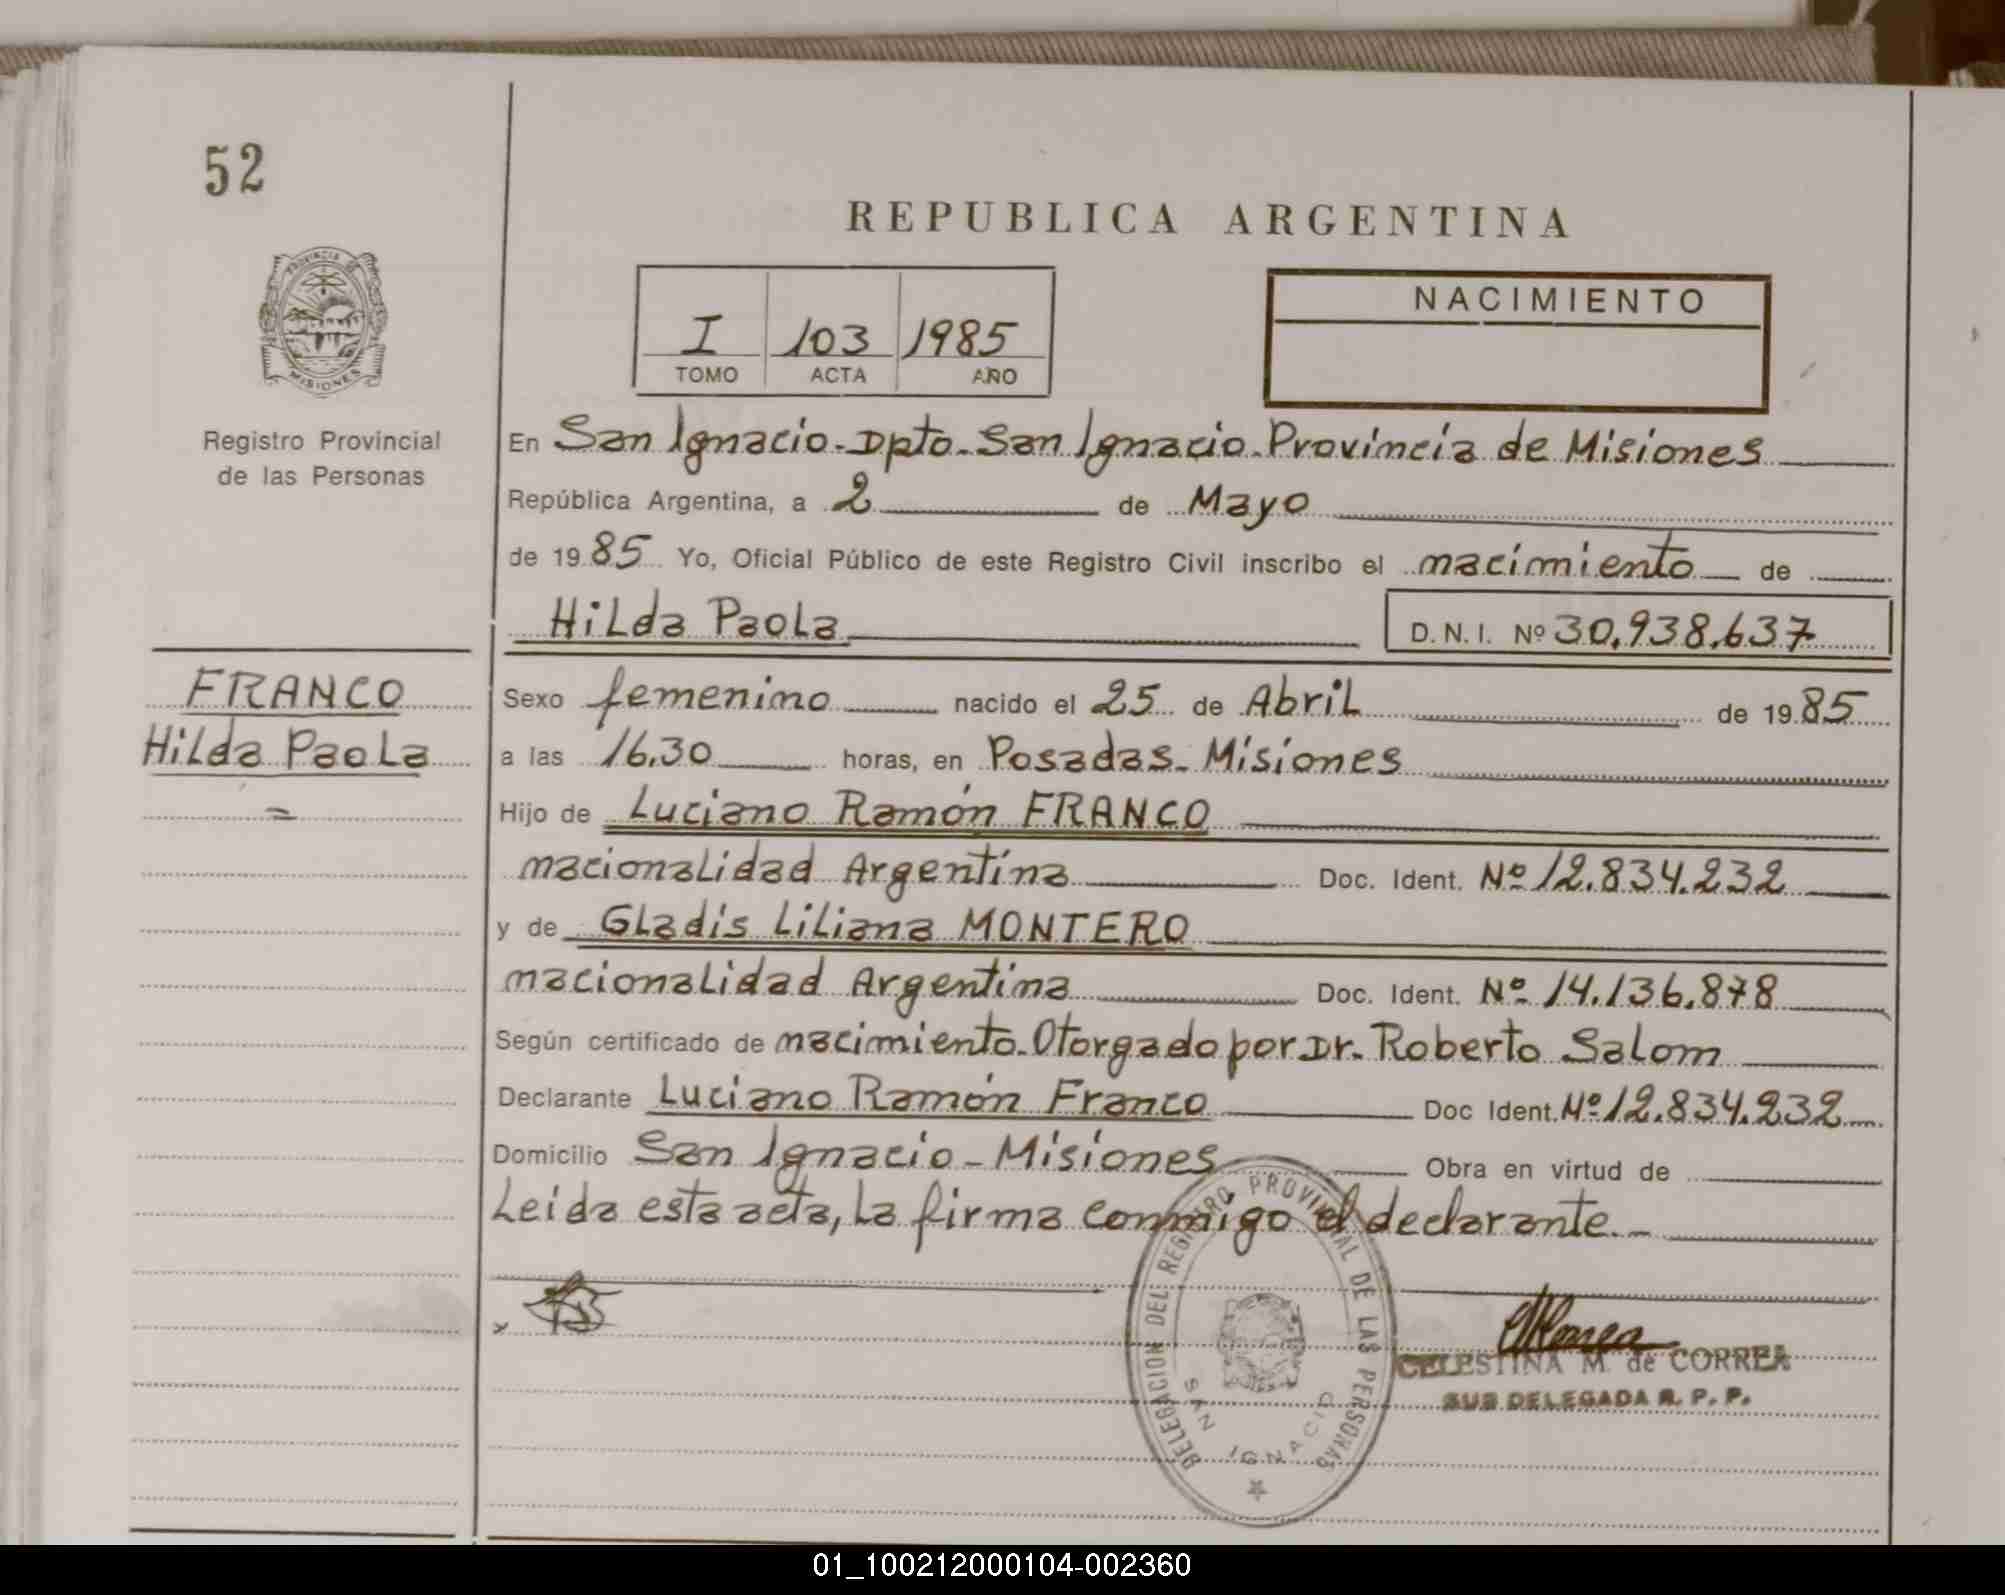 52
REPUBLICA ARGENTINA
PROVINCIA DE
MISIONES
Registro Provincial
de las Personas
I 103 1985
TOMO ACTA AÑO
NACIMIENTO
En San Ignacio - Dpto. San Ignacio. Provincia de Misiones
República Argentina, a 2 de Mayo
de 1985 Yo, Oficial Público de este Registro Civil inscribo el nacimiento de
Hilda Paola D. N. I. Nº 30.938.637
FRANCO
Hilda Paola
=
Sexo femenino nacido el 25 de Abril de 1985
a las 16.30 horas, en Posadas - Misiones
Hijo de Luciano Ramón FRANCO
nacionalidad Argentina Doc. Ident. Nº 12.834.232
y de Gladis Liliana MONTERO
nacionalidad Argentina Doc. Ident. Nº 14.136.878
Según certificado de nacimiento. Otorgado por Dr. Roberto Salom
Declarante Luciano Ramón Franco Doc Ident. Nº 12.834.232
Domicilio San Ignacio - Misiones Obra en virtud de
Leida esta acta, la firma conmigo el declarante. -
x
CELESTINA M. de CORREA
SUB DELEGADA R. P. P.
DELEGACION DEL REGISTRO PROVINCIAL DE LAS PERSONAS
SAN IGNACIO
01_100212000104-002360